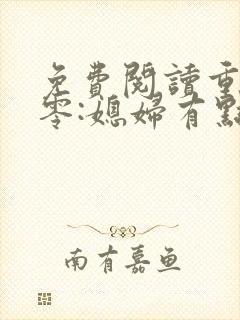 免費閱讀重
零:媳婦有點
南有嘉鱼